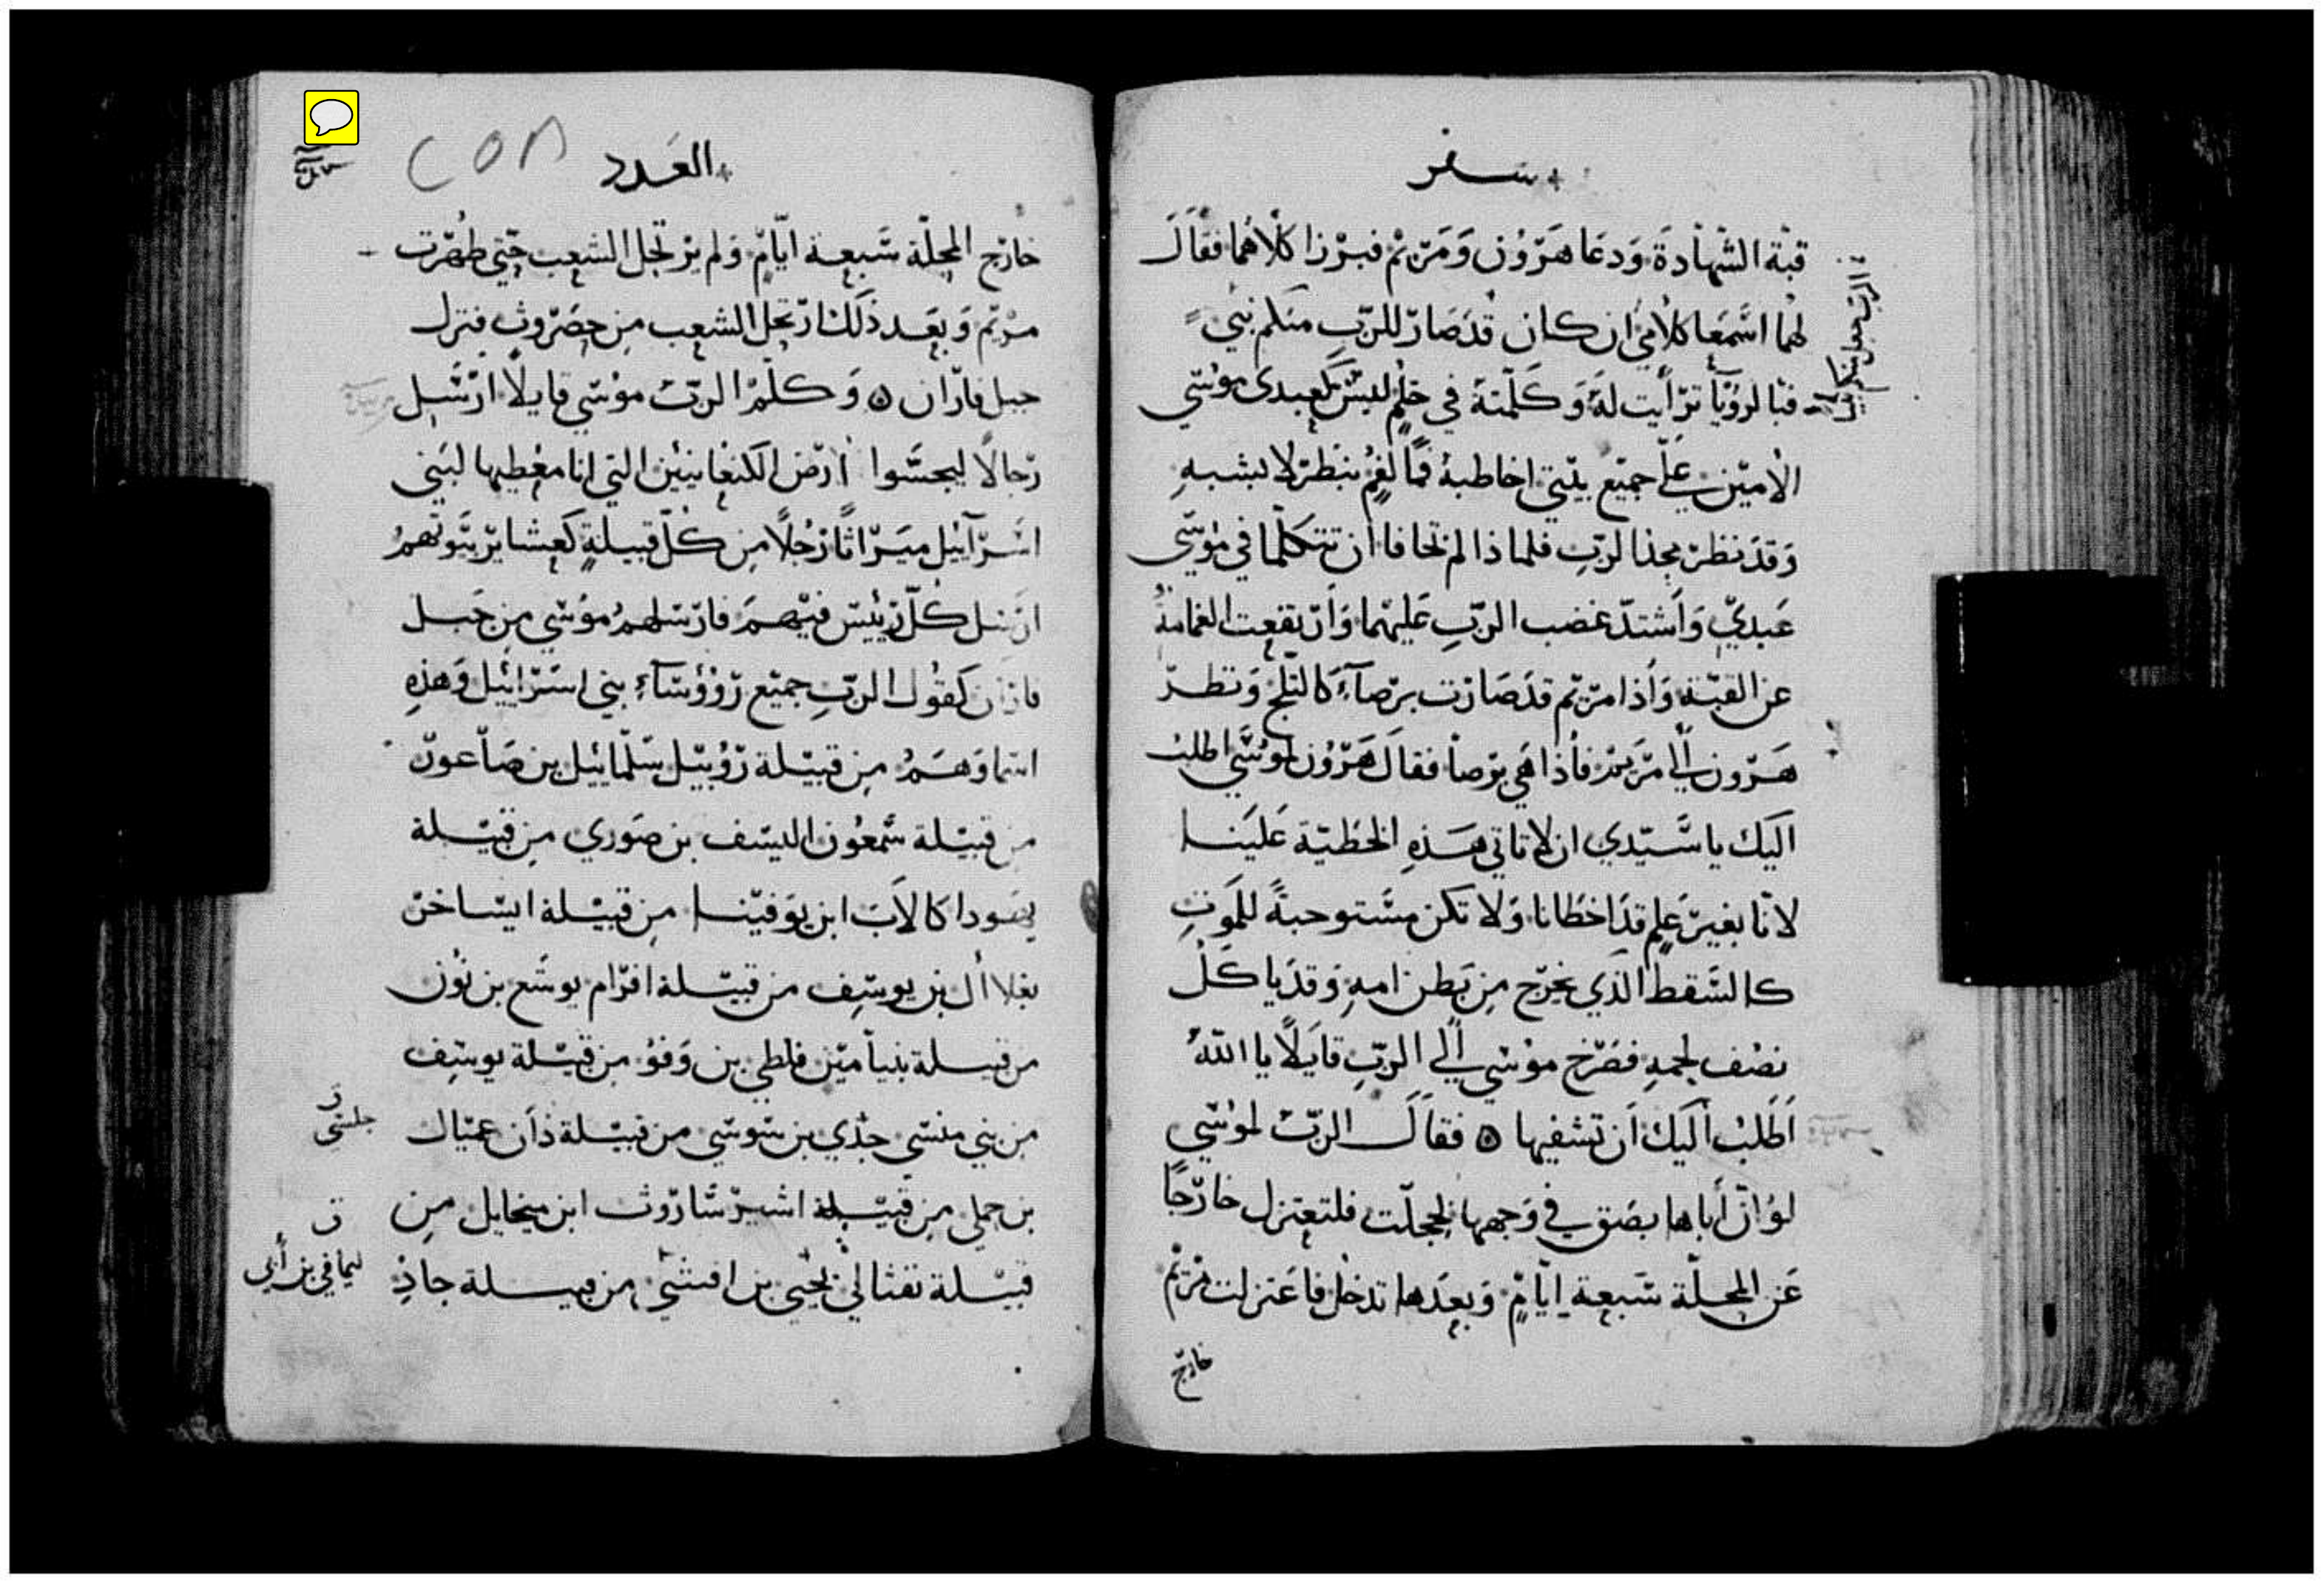 سفر
قبة الشهادة ودعا هرون ومريم فبرزا كلاهما فقال
لهما اسمعا كلامي ان كان قد صار للرب منكم نبي
فبالرؤيا ترأيت له وكلمته في حلم ليس كعبدي موسي
الامين علي جميع بيتي اخاطبه فما لفم بنظر لا بشبه
وقد نظر مجد الرب فلماذا لم تخافا ان تتكلما في موسي
عبدي واشتد غضب الرب عليهما وارتفعت الغمامة
عن القبة واذا مريم قد صارت برصآء كالثلج ونظر
هرون الي مريم فاذا هي برصا فقال هرون لموسي اطلب
اليك يا سيدي ان لا تاتي هذه الخطية علينا
لانا بغير علم قد اخطانا ولا تكن مستوجبة للموت
كالسقط الذي يخرج من بطن امه وقد ياكل
نصف لحمه فصرخ موسي الي الرب قايلا يا الله
اطلب اليك ان تشفيها ٥ فقال الرب لموسي
لو ان اباها بصق في وجهها لخجلت فلتعتزل خارجا
عن المحلة سبعة ايام وبعدها تدخل فاعتزلت مريم
خارج
العدد
٢٥٨
خارج المحلة سبعة ايام ولم يرتحل الشعب حتي طهرت
مريم وبعد ذلك ارتحل الشعب من حصروث فنزل
جبل فاران ٥ وكلم الرب موسي قايلا ارسل
رجالا ليجسوا ارض الكنعانيين التي انا معطيها لبني
اسرآئيل ميراثا رجلا من كل قبيلة كعشاير بيوتهم
ارسل كل رئيس فيهم فارسلهم موسي من جبل
فاران كقول الرب جميع رؤوسآء بني اسرائيل وهذه
اسماوهم من قبيلة روبيل سلمائيل بن صاعون
من قبيلة شمعون اليسف بن صوري من قبيلة
يهودا كالاب ابن يوفينا من قبيلة ايساخر
يغلاال بن يوسف من قبيلة افرام يوشع بن نون
من قبيلة بنيامين فلطي بن وفو من قبيلة يوسف
من بني منسي جدي بن سوسي من قبيلة دان عميال
بن جملي من قبيلة اشير ساروث ابن ميخايل من
قبيلة نفثالي يحيي بن افسي من قبيلة جاد